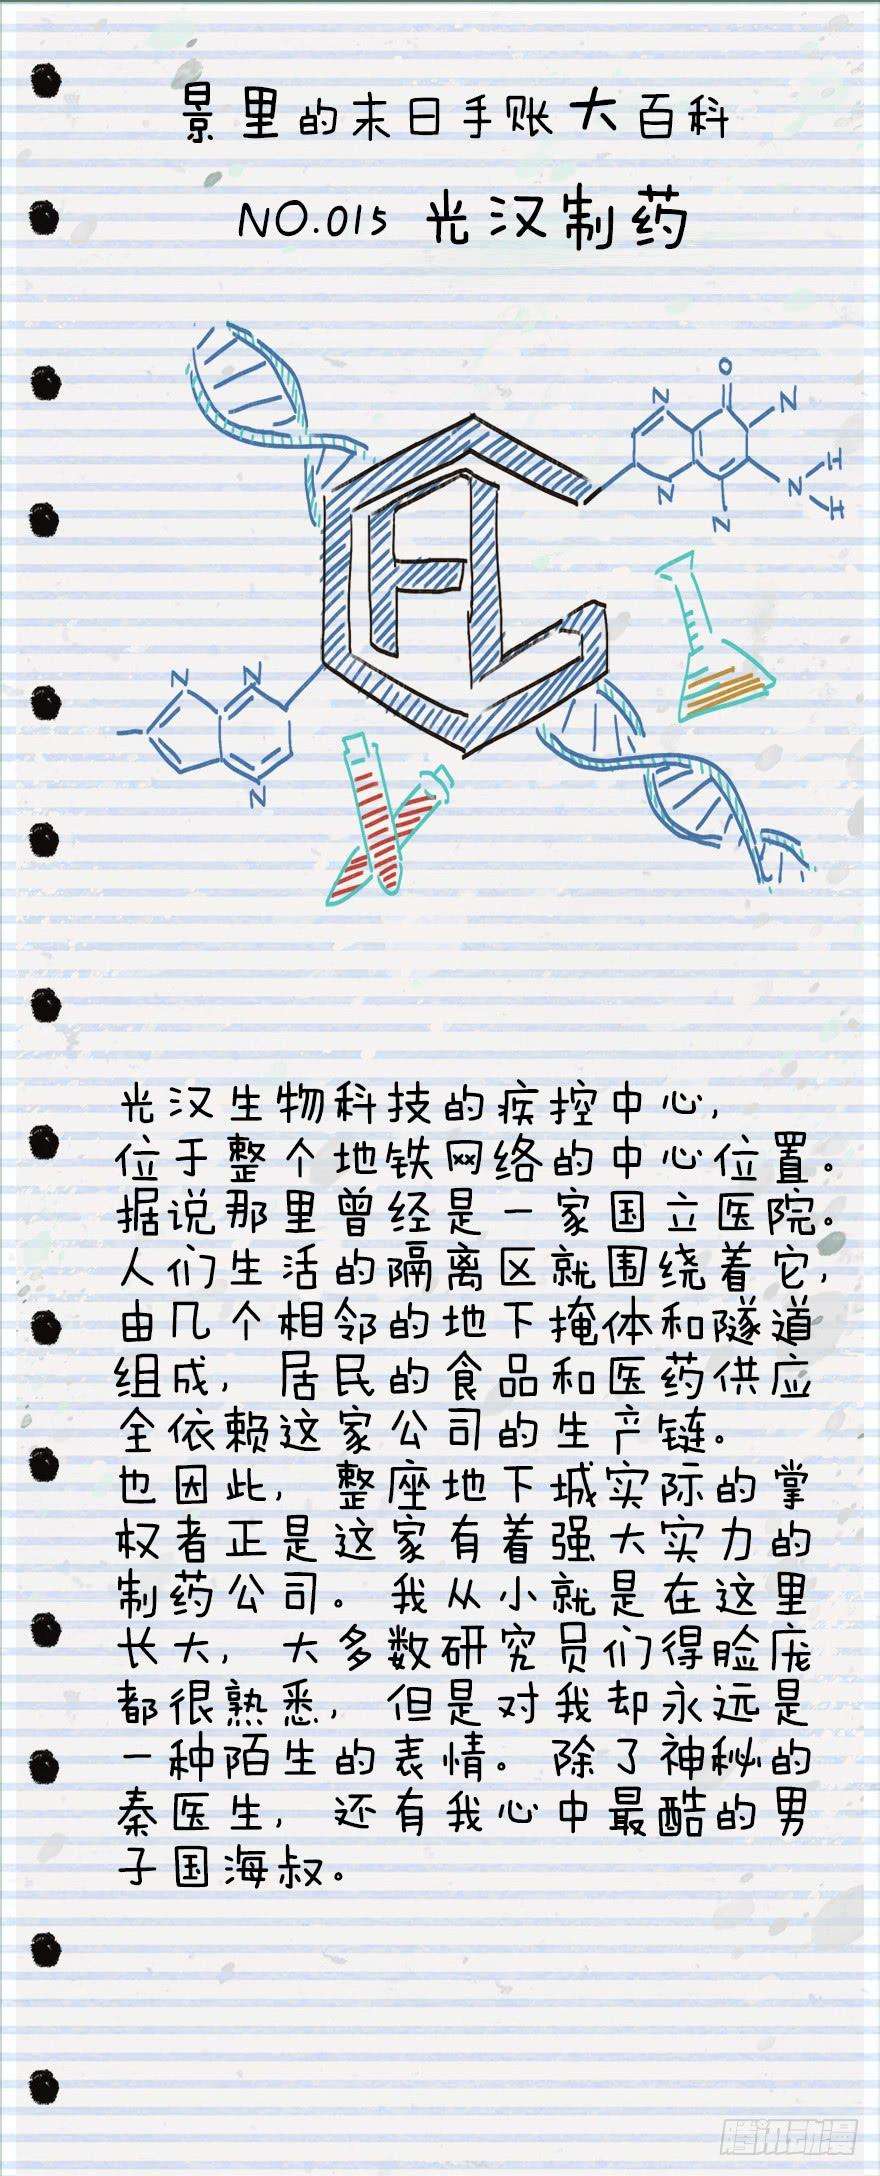 景里的末日手账大百科
NO.015 光汉制药
光汉生物科技的疾控中心，
位于整个地铁网络的中心位置。
据说那里曾经是一家国立医院。
人们生活的隔离区就围绕着它，
由几个相邻的地下掩体和隧道
组成，居民的食品和医药供应
全依赖这家公司的生产链。
也因此，整座地下城实际的掌
权者正是这家有着强大实力的
制药公司。我从小就是在这里
长大，大多数研究员们得脸庞
都很熟悉，但是对我却永远是
一种陌生的表情。除了神秘的
秦医生，还有我心中最酷的男
子国海叔。
腾讯动漫